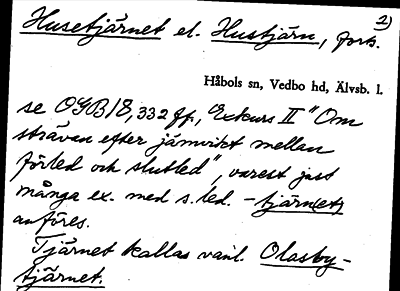 2)
Husetjärnet el. Hustjärn, forts.
Håbols sn, Vedbo hd, Älvsb. l.
se OGB 18, 332 ff., "Exkurs II" Om
strävan efter jämvikt mellan
förled och slutled", varest just
många ex. med s.led. -tjärn(et)
anföres.
Tjärnet kallas vanl. Olasby-
tjärnet.